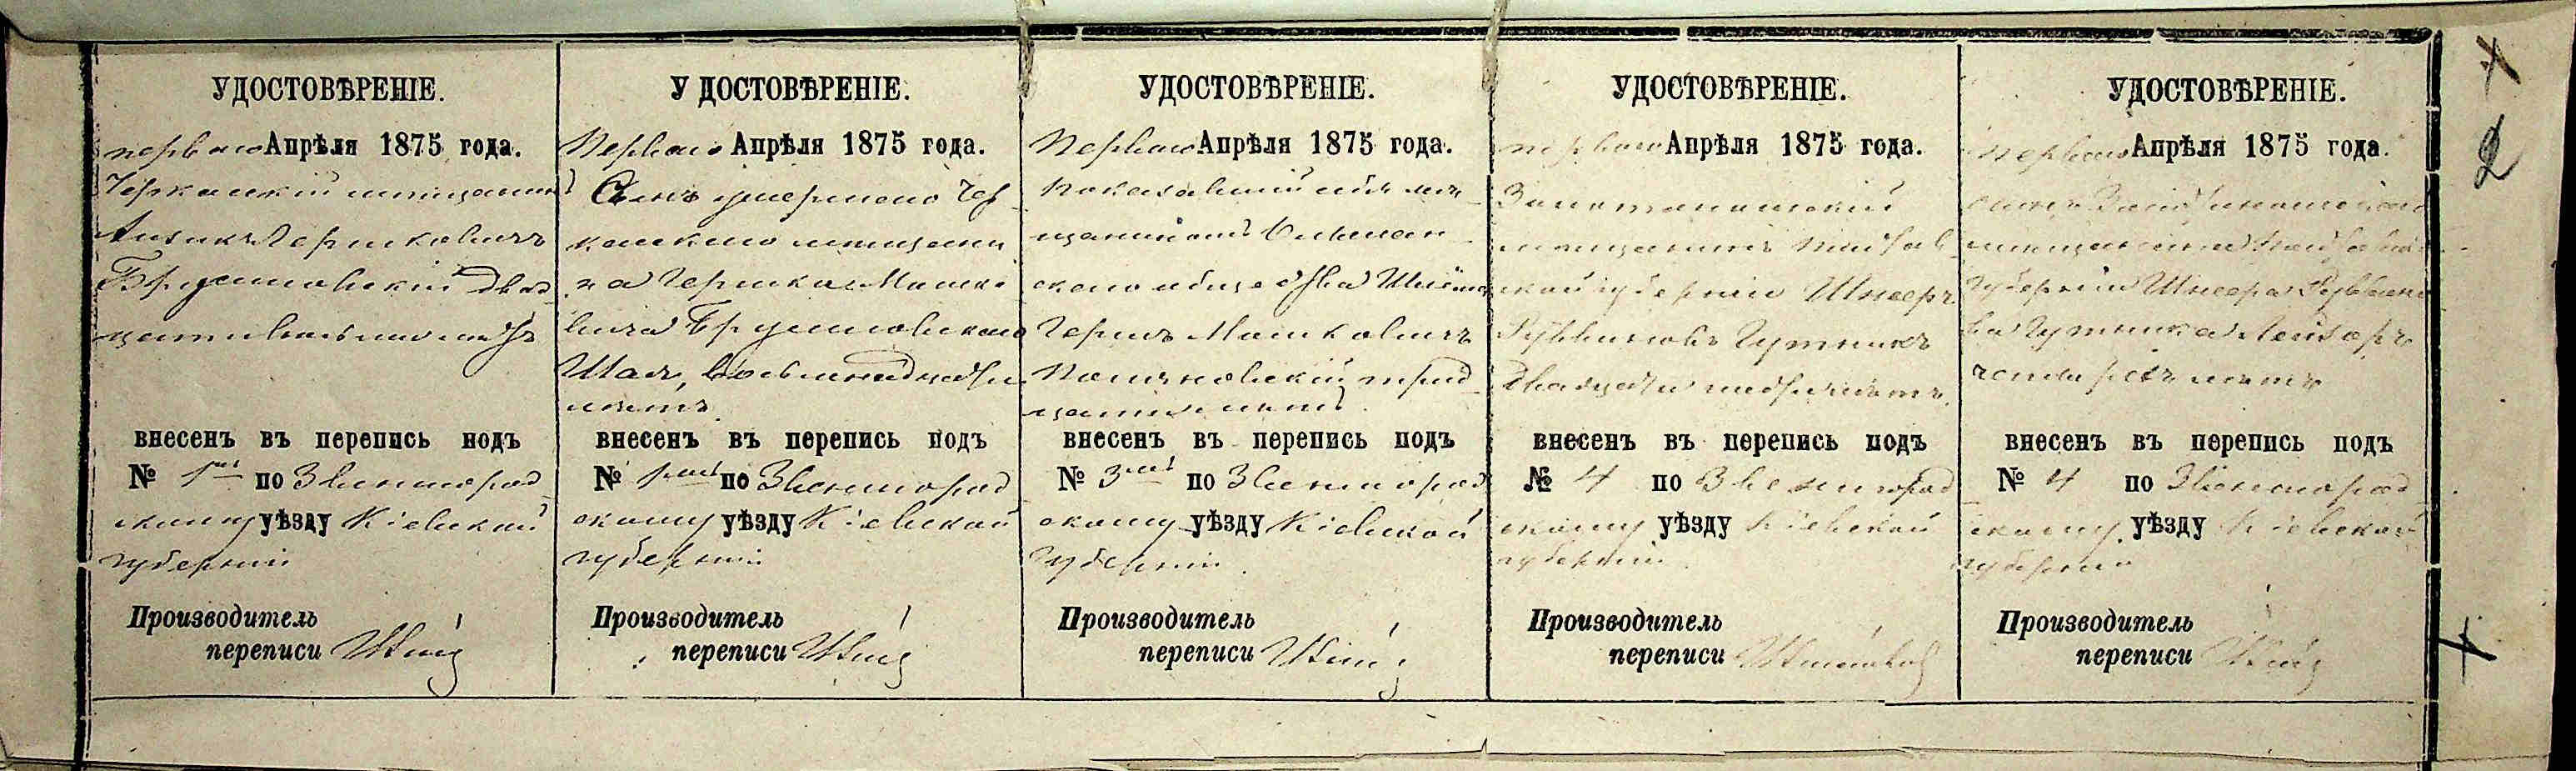 УДОСТОВѢРЕНІЕ.
перваго Апрѣля 1875 года.
Черкаскій мещанинъ
Айзикъ Гершковичъ
Бруслиовскій двад-
цати восьми лѣтъ
внесенъ въ перепись подъ
№ 1мъ по Звенигород
скому уѣзду Кіевской
губерніи
Производитель
переписи
У ДОСТОВѢРЕНІЕ.
Перваго Апрѣля 1875 года.
Сынъ умершаго Чер-
каскаго мещани
на Гершка Мошко
вича Бруслиовскаго
Шая, восьмнадцати
лѣтъ.
внесенъ въ перепись подъ
№ 1мъ по Звенигород
скому уѣзду Кіевской
губерніи
Производитель
переписи
УДОСТОВѢРЕНІЕ.
Перваго Апрѣля 1875 года.
показавшій себя мѣ-
щаниномъ
скаго общества
Гершъ Мошковичъ
трид-
цати лѣтъ.
внесенъ въ перепись подъ
№ 3мъ по Звенигород
скому уѣзду Кіевской
губерніи.
Производитель
переписи
УДОСТОВѢРЕНІЕ.
перваго Апрѣля 1875 года.
мещанинъ Полтав-
ской губерніи Шнееръ
Рувиновъ Гутникъ
двадцати лѣтъ.
внесенъ въ перепись подъ
№ 4 по Звенигород
скому уѣзду Кіевской
губерніи.
Производитель
переписи
УДОСТОВѢРЕНІЕ.
перваго Апрѣля 1875 года.
сынъ
мещанина Полтавской
губерніи Шнеера Рувино
ва Гутника Лейзоръ
четырехъ лѣтъ
внесенъ въ перепись подъ
№ 4 по Звенигород
скому уѣзду Кіевской
губерніи
Производитель
переписи
2